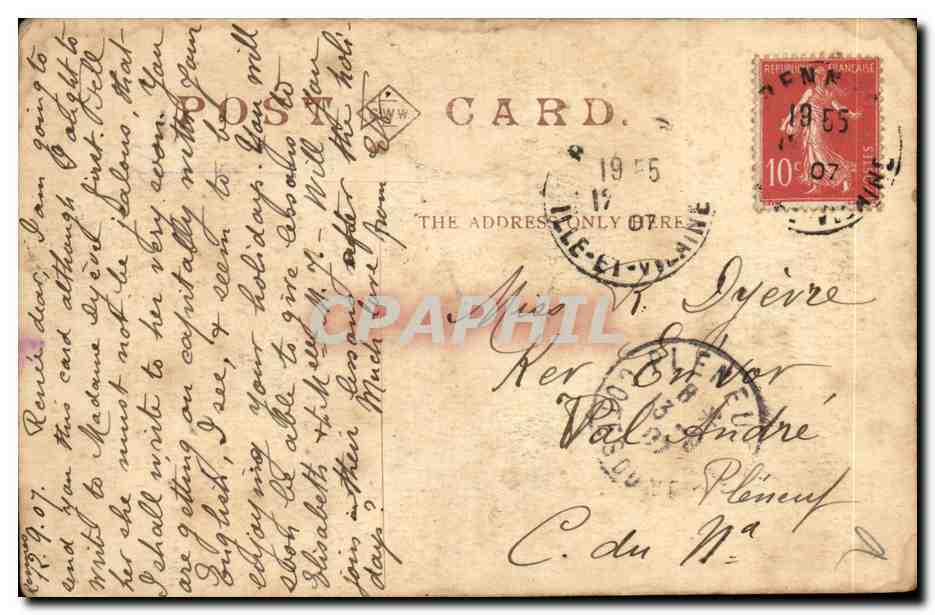 Rennes
12.9.07. Renée dear, I am going to
send you this card although I ought to
write to Madame Dyèvre first. Tell
her she must not be jealous, that
I shall write to her very soon. You
are getting on capitally with your
English, I see, & seem to be
enjoying your holidays. You will
soon be able to give lessons to
Elisabeth & to Melle M. J. - Will you
join in their lessons after the holi-
days?
Much love from
POST CARD.
WW
THE ADDRESS ONLY HERE
REPUBLIQUE FRANÇAISE
10c
POSTES
RENN
19 55
12
07
ILLE-ET-VILAINE
19 55
07
VILAINE
Miss R. Dyèvre
Ker Envor
Val André
Pléneuf
C. du Nd
PLENEUF
COTES DU
CPAPHIL